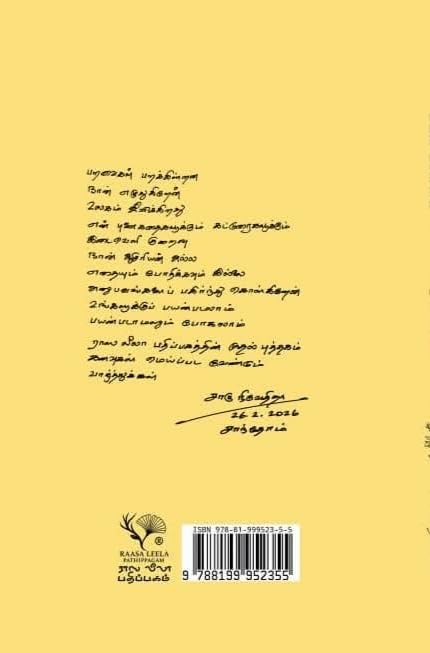 பறவைகள் பறக்கின்றன
நான் எழுதுகிறேன்
உலகம் இயங்குகிறது
என் புனைகதைகளுக்கும் கட்டுரைகளுக்கும்
இடைவெளி குறைவு
நான் ஆசிரியன் அல்ல
எதையும் போதிக்கவும் இல்லை
அனுபவங்களைப் பகிர்ந்து கொள்கிறேன்
உங்களுக்குப் பயன்படலாம்
பயன்படாமலும் போகலாம்
ராஸ லீலா பதிப்பகத்தின் முதல் புத்தகம்
கனவுகள் மெய்ப்பட வேண்டும்
வாழ்த்துக்கள்
சாரு நிவேதிதா
26.2.2026
சாந்தோம்
ISBN 978-81-999523-5-5
RAASA LEELA
PATHIPPAGAM
ராஸ லீலா
பதிப்பகம்
9 788199 952355